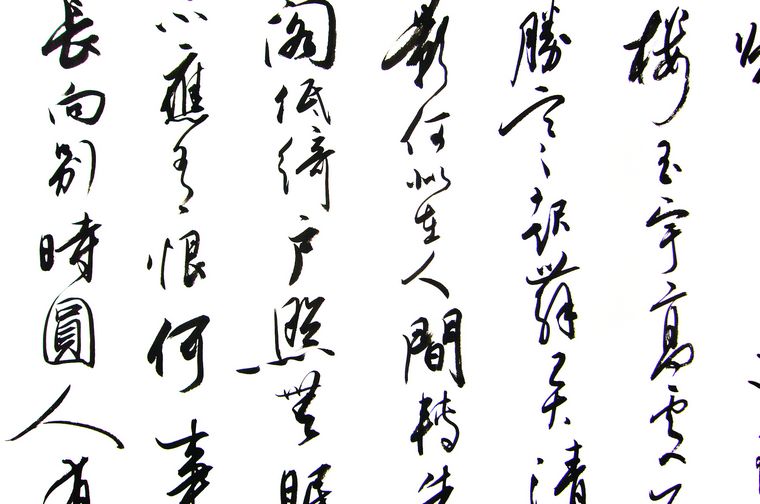 樓玉宇高處不
勝寒起舞弄清
影何似在人間轉朱
閣低綺戶照無眠
不應有恨何事
長向別時圓人有